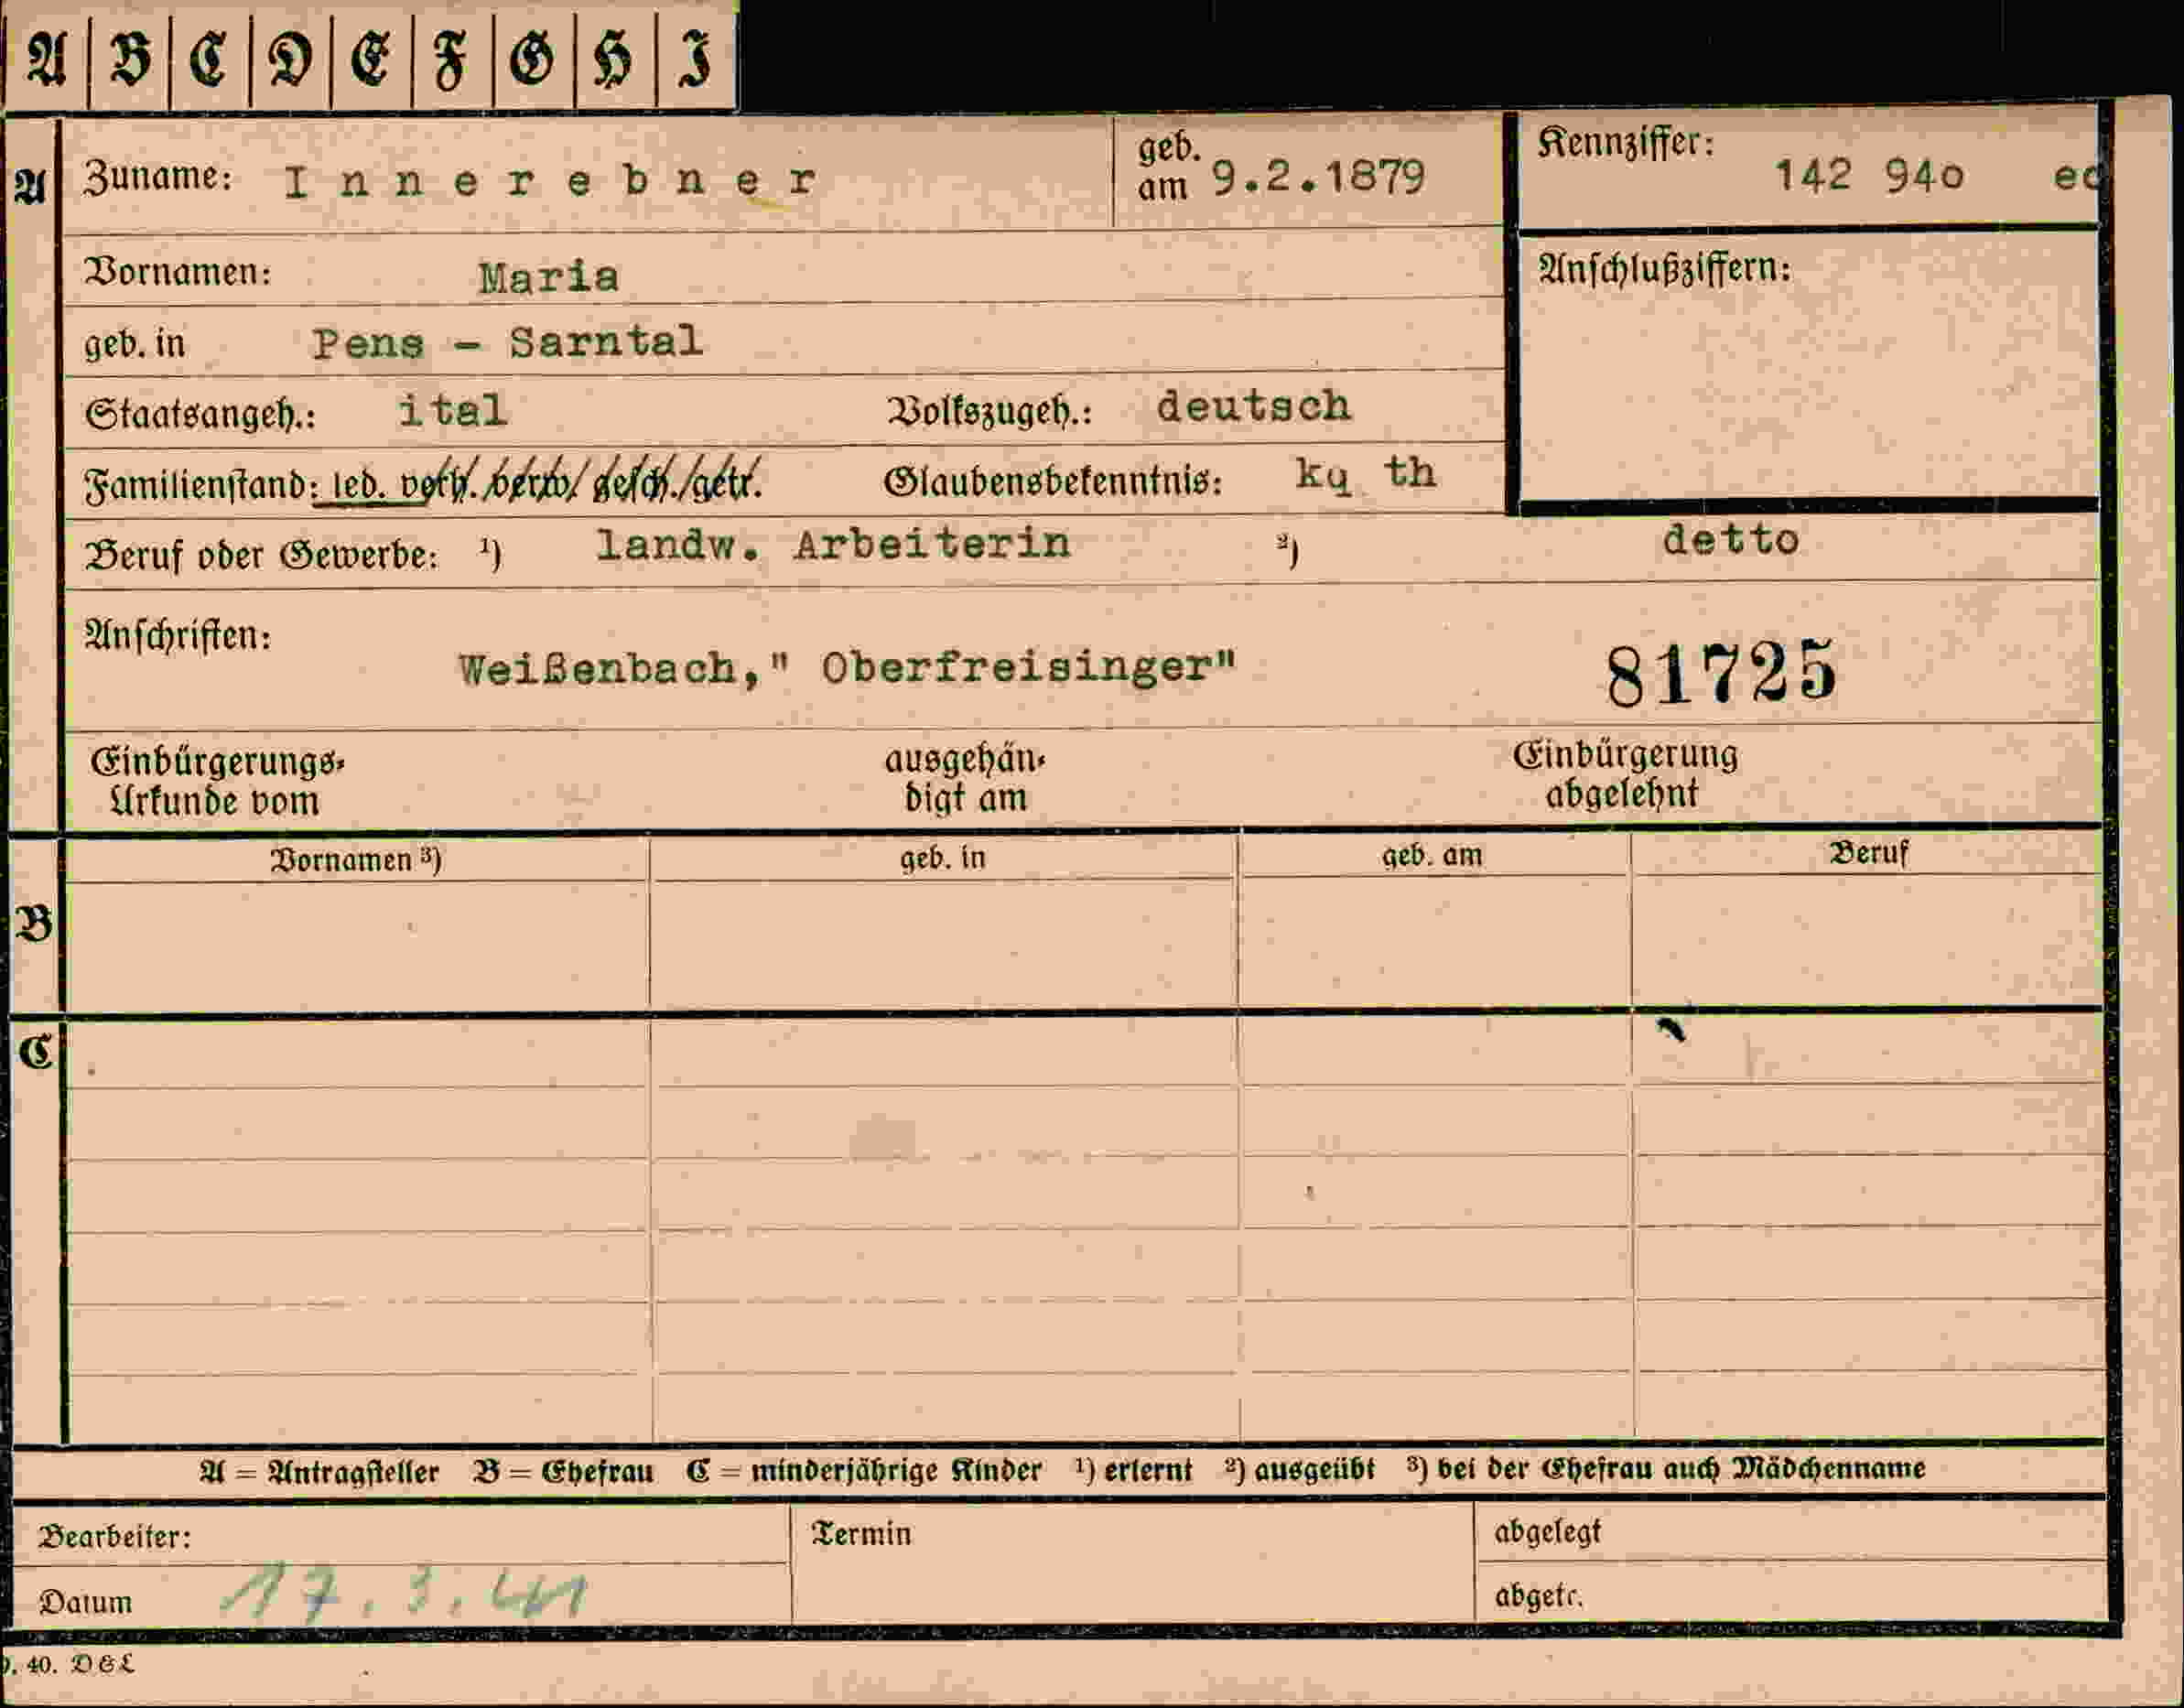 A B C D E F G H I
A Zuname: Innerebner geb. am 9.2.1879 Kennziffer: 142 940
Vornamen: Maria Anschlußziffern:
geb. in Pens - Sarntal
Staatsangeh.: ital Volkszugeh.: deutsch
Familienstand: led. verh. verw. gesch. getr. Glaubensbekenntnis: kq th
Beruf oder Gewerbe: ¹) landw. Arbeiterin ²) detto
Anschriften:
Weißenbach," Oberfreisinger" 81725
Einbürgerungs- Urkunde vom ausgehän- digt am Einbürgerung abgelehnt
Vornamen ³) geb. in geb. am Beruf
B
C
A = Antragsteller B = Ehefrau C = minderjährige Kinder ¹) erlernt ²) ausgeübt ³) bei der Ehefrau auch Mädchenname
Bearbeiter: Termin abgelegt
Datum 17.3.41 abgetr.
40. D & L